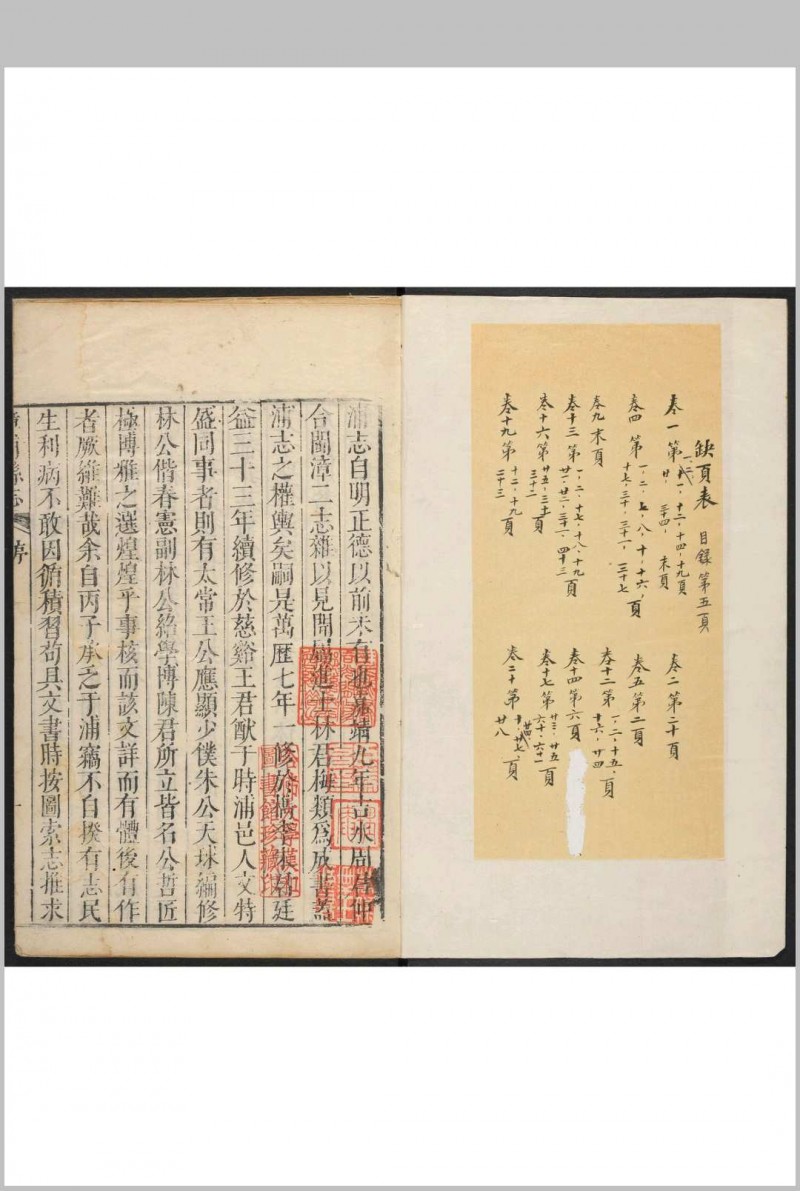 缺頁表 目錄第五頁
卷一第 十一、十二、十四、十九頁 廿、三十四、末頁
卷四第 一、二、七、八、十、十六、頁 十七、三十、三十一、三十七
卷九末頁
卷十三第 一、二、十七、十八、十九頁 廿一、廿二、三十一、四十三
卷十六第 頁 三十二
卷十九第 十二、十九頁 二十三
卷二第二十頁
卷五第二頁
卷十二第 一、二、十五、頁 十六、廿四
卷十四第六頁
卷十七第 廿三、廿五頁 六十、六十一
卷二十第 廿七、頁 廿八
浦志自明正德以前未有也嘉靖九年吉水周君仲
合閩漳二志雜以見聞屬進士林君梅類爲成書蓋
浦志之權輿矣嗣是萬歷七年一修於檇李 君廷
益三十三年續修於慈谿王君猷于時浦邑人文特
盛同事者則有太常王公應顯少僕朱公天球編修
林公偕春憲副林公 學博陳君所立皆名公哲匠
極博雅之選煌煌乎事核而該文詳而有體後有作
者厥維難哉余自丙子承乏于浦竊不自揆有志民
生利病不敢因循積習苟具文書時按圖索志推求
漳浦縣志 序 一